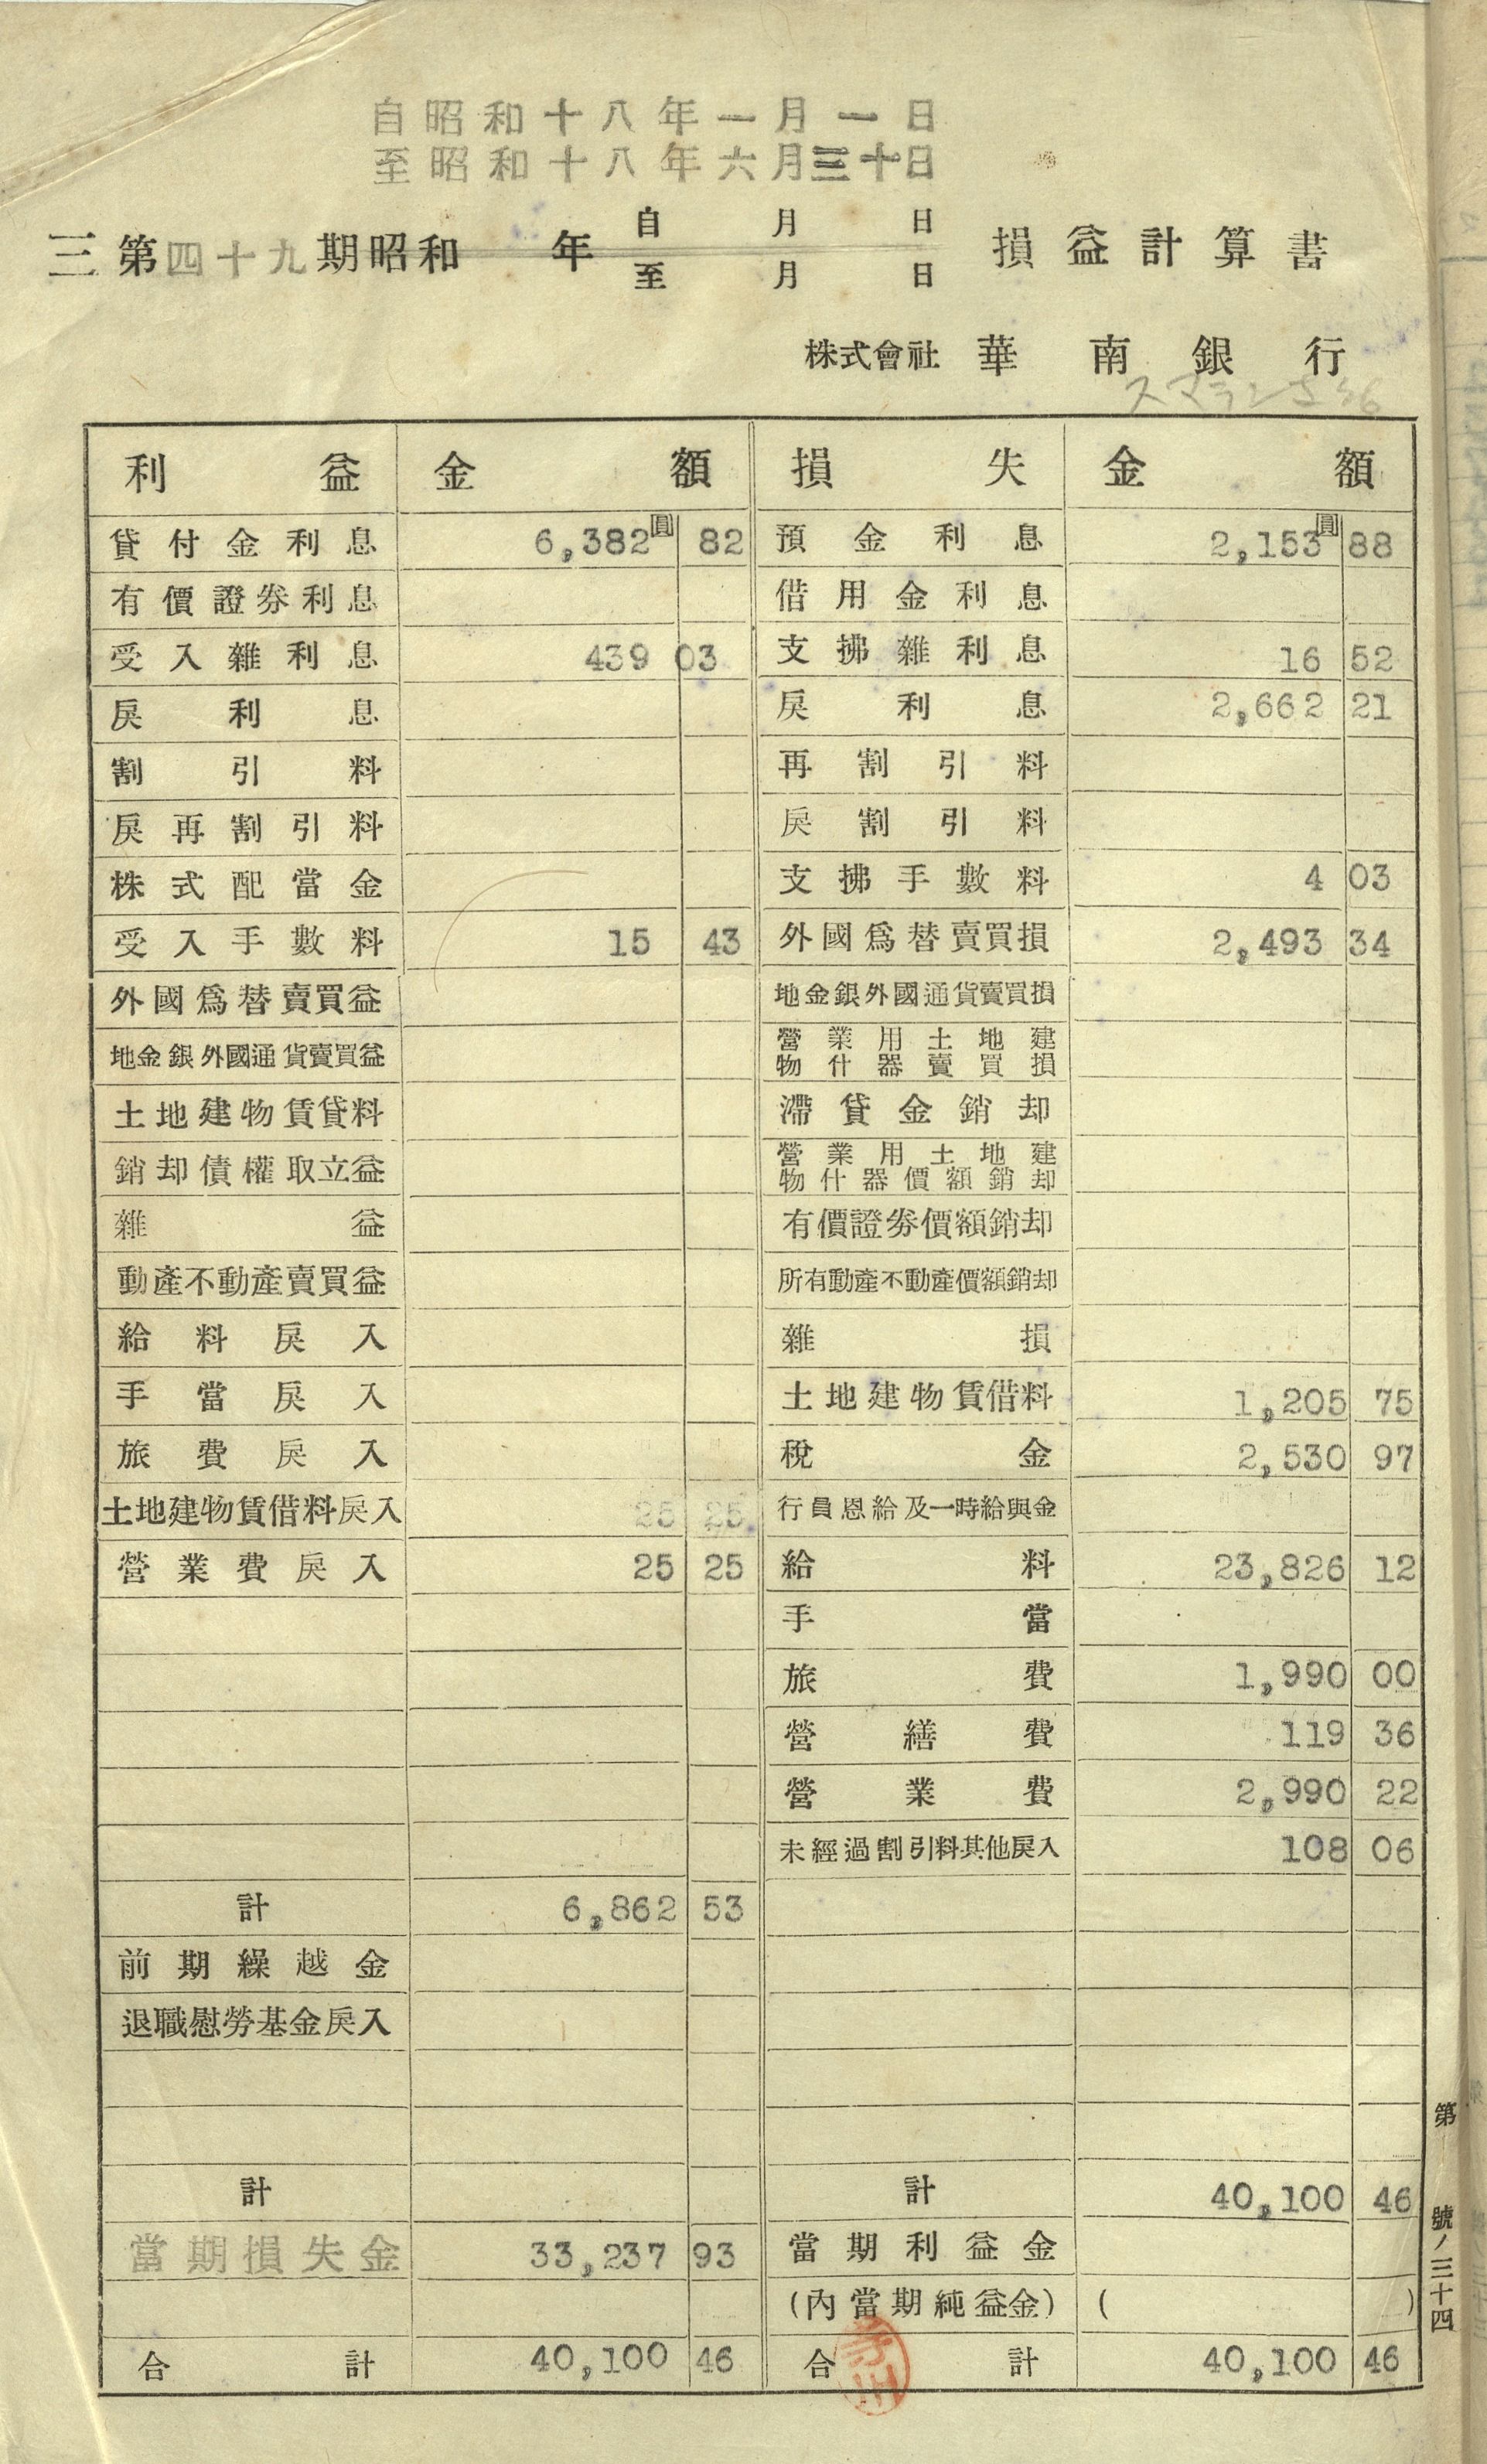 自昭和十八年一月一日
至昭和十八年六月三十日
三 第四十九期昭和 年 自 月 日 至 月 日 損益計算書
株式會社 華南銀行
スマラン
利益 金額 損失 金額
貸付金利息 6,382圓 82 預金利息 2,153圓 88
有價證券利息 借用金利息
受入雜利息 439 03 支拂雜利息 16 52
戾利息 戾利息 2,662 21
割引料 再割引料
戾再割引料 戾割引料
株式配當金 支拂手數料 4 03
受入手數料 15 43 外國爲替賣買損 2,493 34
外國爲替賣買益 地金銀外國通貨賣買損
地金銀外國通貨賣買益 營業用土地建物什器賣買損
土地建物賃貸料 滯貸金銷却
銷却債權取立益 營業用土地建物什器價額銷却
雜益 有價證券價額銷却
動產不動產賣買益 所有動產不動產價額銷却
給料戾入 雜損
手當戾入 土地建物賃借料 1,205 75
旅費戾入 稅金 2,530 97
土地建物賃借料戾入 25 25 行員恩給及一時給與金
營業費戾入 25 25 給料 23,826 12
手當
旅費 1,990 00
營繕費 119 36
營業費 2,990 22
未經過割引料其他戾入 108 06
計 6,862 53
前期繰越金
退職慰勞基金戾入
計 計 40,100 46
當期損失金 33,237 93 當期利益金
(內當期純益金) ( )
合計 40,100 46 合計 40,100 46
第 號ノ三十四